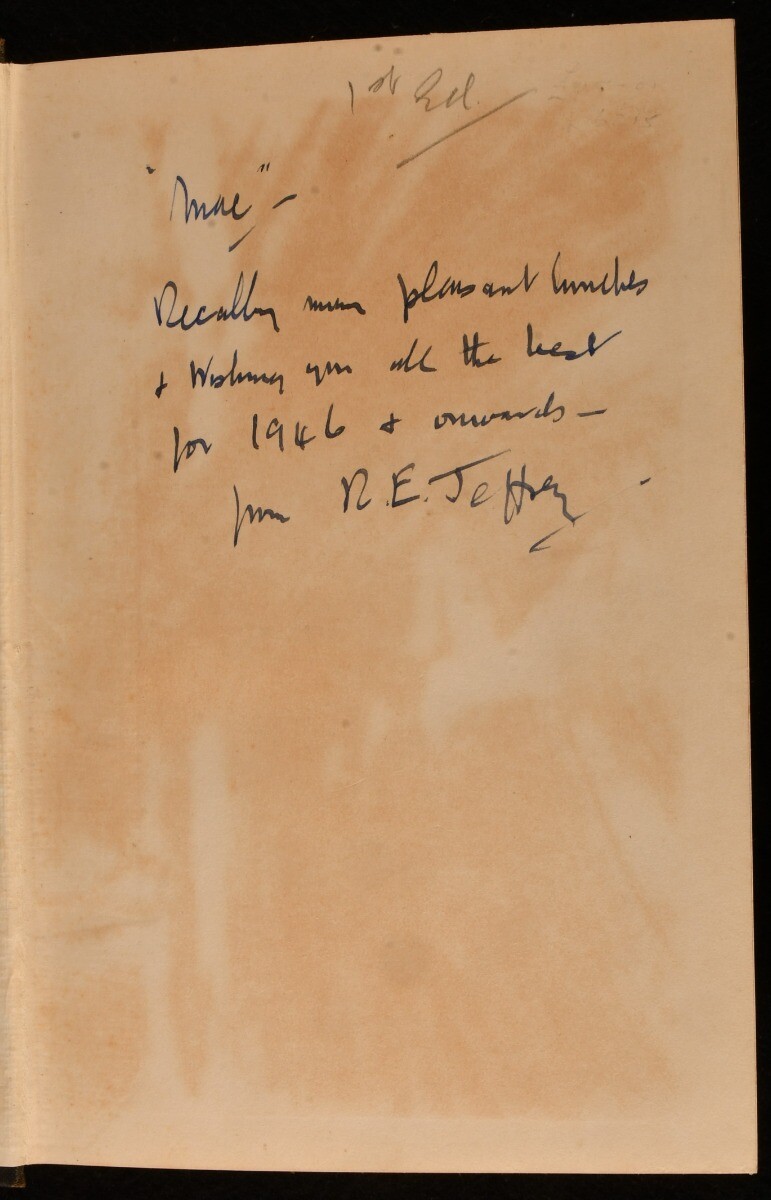 1st Ed.
"Mac" –
Recalling many pleasant lunches
& Wishing you all the best
for 1946 & onwards –
from R.E. Jeffrey –